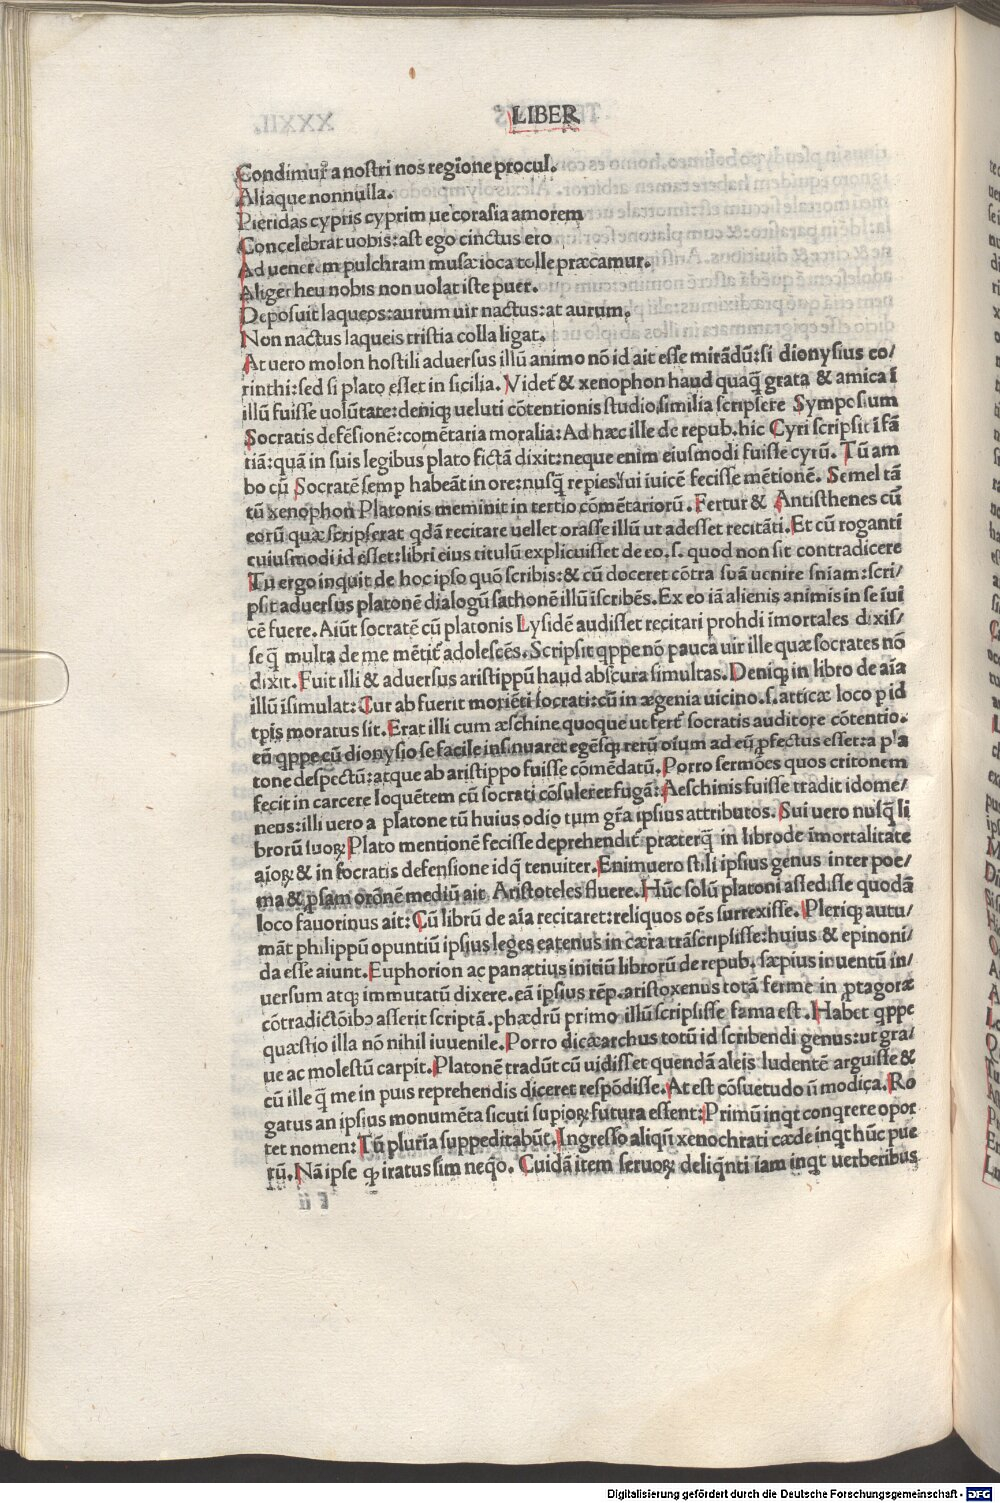 LIBER
Condimur a nostri nos regione procul.
Aliaque nonnulla.
Pieridas cypris cyprim ue corasia amorem
Concelebrat uobis: ast ego cinctus ero
Ad uenerem pulchram musæ ioca tolle præcamur.
Aliger heu nobis non uolat iste puer.
Deposuit laqueos: aurum uir nactus: at aurum,
Non nactus laqueis tristia colla ligat.
At uero molon hostili aduersus illũ animo nõ id ait esse mirãdũ: si dionysius co/
rinthi: sed si plato esset in sicilia. Videt̃ & xenophon haud quaq̃ grata & amica ĩ
illũ fuisse uolũtate: deniqꝫ ueluti cõtentionis studio similia scripsere Symposium
Socratis defẽsionẽ: comẽtaria moralia: Ad hæc ille de repub. hic Cyri scripsit ĩfã
tiã: quã in suis legibus plato fictã dixit: neque enim eiusmodi fuisse cyrũ. Tũ am
bo cũ Socratẽ semp habeãt in ore: nusq̃ repies sui iuicẽ fecisse mẽtionẽ. Semel tã
tũ xenophon Platonis meminit in tertio comẽtariorũ. Fertur & Antisthenes cũ
eorũ quæ scripserat qdã recitare uellet orasse illũ ut adesset recitãti. Et cũ rogantĩ
cuiusmodi id esset: libri eius titulũ explicuisset de eo. s. quod non sit contradicere
Tu ergo inquit de hoc ipso quõ scribis: & cũ doceret cõtra suã uenire sniam: scri/
psit aduersus platonẽ dialogũ sathonẽ illũ ĩscribẽs. Ex eo iã alienis animis in se ĩui
cẽ fuere. Aiũt socratẽ cũ platonis Lysidẽ audisset recitari prohdi ĩmortales dixis/
se q̃ multa de me mẽtit̃ adolescẽs. Scripsit qppe nõ pauca uir ille quæ socrates nõ
dixit. Fuit illi & aduersus aristippũ haud abscura simultas. Deniqꝫ in libro de aĩa
illũ ĩsimulat: Cur ab fuerit moriẽti socrati: cũ in ægenia uicino. s. atticæ loco p id
tp̃is moratus sit. Erat illi cum æschine quoque ut fert̃ socratis auditore cõtentio.
eũ qppe cũ dionysio se facile insinuaret egẽsqꝫ rerũ oĩum ad eũ pfectus esset: a pla
tone despectũ: atque ab aristippo fuisse cõmẽdatũ. Porro sermões quos critonem
fecit in carcere loquẽtem cũ socrati cõsuleret fugã: Aeschinis fuisse tradit idome/
neus: illi uero a platone tũ huius odio tum gr̃a ipsius attributos. Sui uero nusq̃ li
brorũ suoꝝ Plato mentionẽ fecisse deprehendit̃ præterq̃ in libro de ĩmortalitate
aĩoꝝ & in socratis defensione idq̃ tenuiter. Enimuero stili ipsius genus inter poe/
ma & p̱sam ordnẽ mediũ ait Aristoteles fluere. Hũc solũ platoni assedisse quodã
loco fauorinus ait: Cũ librũ de aĩa recitaret: reliquos oẽs surrexisse. Pleriqꝫ autu/
mãt philippũ opuntiũ ipsius leges eatenus in cæra trãscripsisse: huius & epinoni/
da esse aiunt. Euphorion ac panætius initiũ librorũ de repub. sæpius inuentũ in/
uersum atqꝫ immutatũ dixere. eã ipsius rẽp. aristoxenus totã ferme in ꝓtagoræ
cõtradictõibɔ asserit scriptã. phædrũ primo illũ scripsisse fama est. Habet qppe
quæstio illa nõ nihil iuuenile. Porro dicæarchus totũ id scribendi genus: ut gra/
ue ac molestũ carpit. Platonẽ tradũt cũ uidisset quendã aleis ludentẽ arguisse &
cũ ille q̃ me in puis reprehendis diceret respõdisse. At est cõsuetudo ñ modica. Ro
gatus an ipsius monumẽta sicuti supioꝝ futura essent: Primũ inqt conqrere opor
tet nomen: Tũ plurĩa suppeditabũt. Ingresso aliqñ xenochrati cæde inqt hũc pue
rũ. Nã ipse qꝫ iratus sim neqo. Cuidã item seruoꝝ deliqnti iam inqt uerberibus
Digitalisierung gefördert durch die Deutsche Forschungsgemeinschaft - DFG